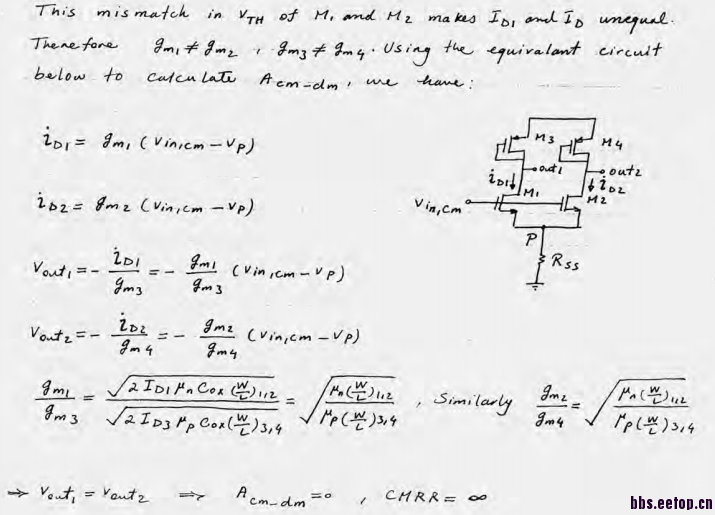 This mismatch in V_TH of M1 and M2 makes I_D1 and I_D unequal.
Therefore g_m1 ≠ g_m2 , g_m3 ≠ g_m4 . Using the equivalent circuit
below to calculate A_cm-dm , we have :
i_D1 = g_m1 ( V_in,cm − V_P )
i_D2 = g_m2 ( V_in,cm − V_P )
V_out1 = − i_D1 / g_m3 = − g_m1 / g_m3 ( V_in,cm − V_P )
V_out2 = − i_D2 / g_m4 = − g_m2 / g_m4 ( V_in,cm − V_P )
M3
M4
out1
out2
i_D1
M1
i_D2
M2
V_in,cm
P
R_SS
g_m1 / g_m3 = √(2 I_D1 μ_n Cox (W/L)_1,2) / √(2 I_D3 μ_p Cox (W/L)_3,4) = √(μ_n (W/L)_1,2 / μ_p (W/L)_3,4) , Similarly g_m2 / g_m4 = √(μ_n (W/L)_1,2 / μ_p (W/L)_3,4)
⇒ V_out1 = V_out2 ⇒ A_cm-dm = 0 , CMRR = ∞
bbs.eetop.cn